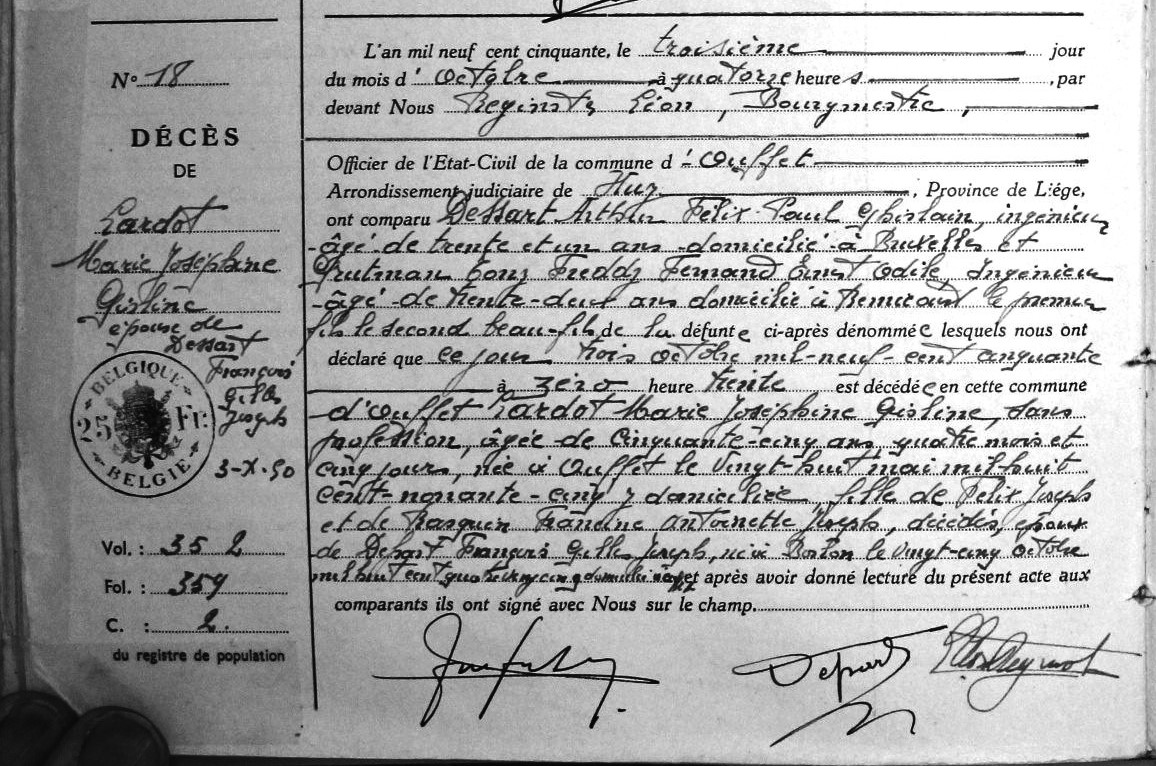 N° 18
DÉCÈS
DE
Lardot
Marie Joséphine
Gisline
épouse de
Dessart
François
Gilles
Joseph
BELGIQUE
25 Fr.
BELGIE
3-X-50
Vol. : 352
Fol. : 359
C. : 2.
du registre de population
L'an mil neuf cent cinquante, le troisième jour
du mois d' octobre à quatorze heures, par
devant Nous Léon, Bourgmestre,
Officier de l'Etat-Civil de la commune d' Ouffet
Arrondissement judiciaire de Huy, Province de Liége,
ont comparu Dessart Arthur Félix Paul Ghislain, ingénieur
âgé de trente et un ans domicilié à Bruxelles et
Freddy Fernand Ernst Odile, Ingénieur
âgé de trente-deux ans domicilié à le premier
fils le second beau-fils de la défunte ci-après dénommée lesquels nous ont
déclaré que ce jour trois octobre mil-neuf-cent cinquante
à zéro heure trente est décédée en cette commune
d'Ouffet Lardot Marie Joséphine Gisline, sans
profession, âgée de cinquante-cinq ans, quatre mois et
cinq jours, née à Ouffet le vingt-huit mai mil huit
cent-nonante-cinq y domiciliée, fille de Félix Joseph
et de Francine Antoinette Joseph, décédés, épouse
de Dessart François Gilles Joseph, né à le vingt-cinq octobre
mil huit cent et après avoir donné lecture du présent acte aux
comparants ils ont signé avec Nous sur le champ.